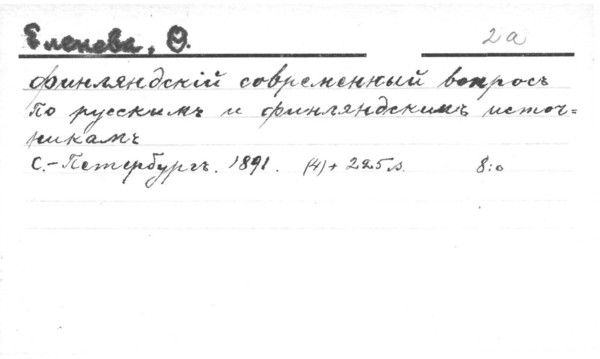 Еленева, Ѳ.
2а
Финляндскій современный вопросъ
по русскимъ и финляндскимъ источ=
никамъ
С.-Петербургъ. 1891. (4) + 225 s. 8:o